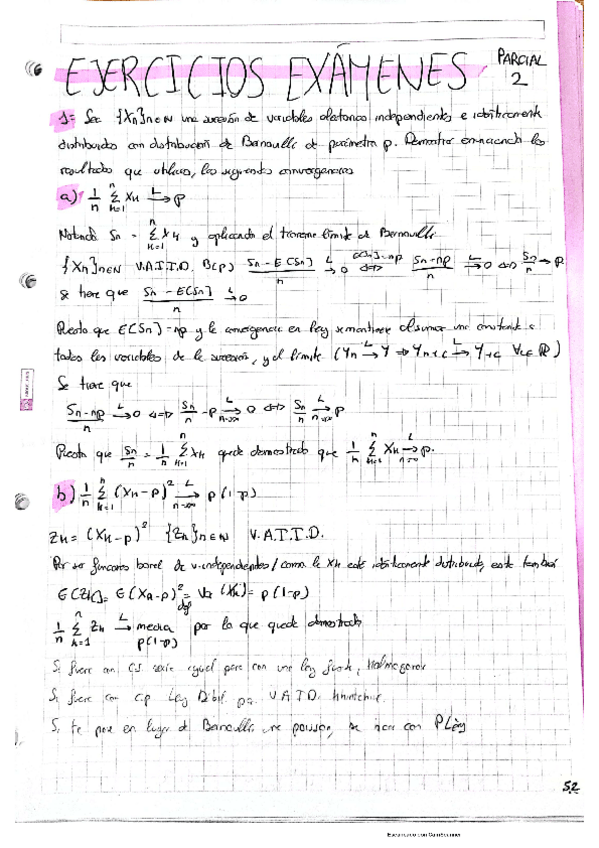 EJERCICIOS EXÁMENES PARCIAL 2
1= Sea {Xn}n∈N una sucesión de variables aleatorias independientes e idénticamente
distribuidas con distribución de Bernoulli de parámetro p. Demostrar enunciando los
resultados que utilices, las siguientes convergencias
a) 1/n Σ_{k=1}^{n} Xk →^L p
Notando Sn = Σ_{k=1}^{n} Xk y aplicando el teorema límite de Bernoulli
{Xn}n∈N V.A.I.I.D. B(p) (Sn - E(Sn))/n →^L 0 ⇔ (Sn - np)/n →^L 0 ⇔ Sn/n → p
se tiene que (Sn - E(Sn))/n →^L 0
Puesto que E(Sn) = np y la convergencia en ley se mantiene al sumar una constante a
todas las variables de la sucesión, y al límite (Yn →^L Y ⇒ Yn+c →^L Y+c ∀c∈R)
Se tiene que
(Sn - np)/n →^L 0 ⇔ Sn/n - p →^L_{n→∞} 0 ⇔ Sn/n →^L_{n→∞} p
Puesto que Sn/n = 1/n Σ_{k=1}^{n} Xk queda demostrado que 1/n Σ_{k=1}^{n} Xk →^L_{n→∞} p.
b) 1/n Σ_{k=1}^{n} (Xk - p)² →^L_{n→∞} p(1-p)
Zk = (Xk - p)² {Zn}n∈N V.A.I.I.D.
Por ser funciones borel de v. independientes / como la Xk está idénticamente distribuida, este también
E(Zk) = E(Xk - p)² =_{def} Var(Xk) = p(1-p)
1/n Σ_{k=1}^{n} Zk →^L media p(1-p) por lo que queda demostrado
Si fuera con C.S. sería igual pero con una ley fuerte,
Si fuera con c.p Ley Débil para V.A.I.I.D. Khintchine
Si te pone en lugar de Bernoulli una poisson, se hace con
52
Escaneado con CamScanner